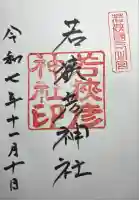 若狭国一の宮
若狭彦神社
若狭彦
神社印
令和七年十一月十日